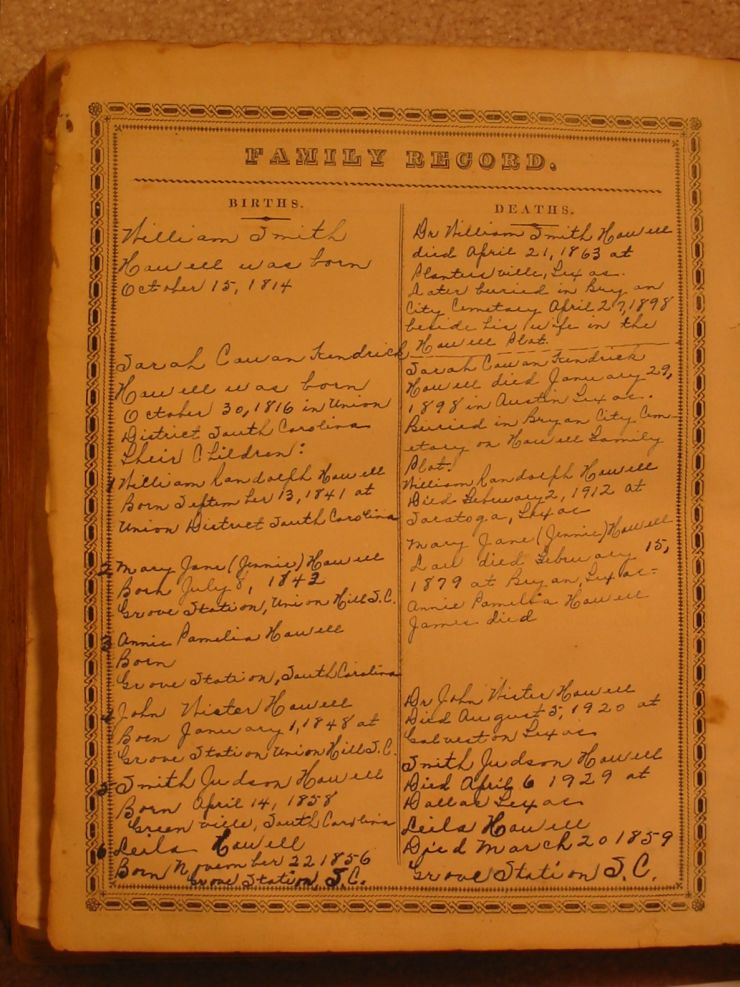 FAMILY RECORD.
BIRTHS.
William Smith
Howell was born
October 15, 1814
Sarah Cowan Kendrick
Howell was born
October 30, 1816 in Union
District South Carolina
Their Children:
1 William Randolph Howell
Born September 13, 1841 at
Union District South Carolina
2 Mary Jane (Jennie) Howell
Born July 8, 1843
Grove Station, Union Hill S.C.
3 Annie Pamelia Howell
Born
Grove Station, South Carolina
4 John Wister Howell
Born January 1, 1848 at
Grove Station Union Hill S.C.
5 Smith Judson Howell
Born April 14, 1858
Greenville, South Carolina
6 Leila Howell
Born November 22 1856
Grove Station, S.C.
DEATHS.
Dr William Smith Howell
died April 21, 1863 at
Plantersville, Texas.
Later buried in Bryan
City Cemetary April 27, 1898
beside his wife in the
Howell Plot.
Sarah Cowan Kendrick
Howell died January 29,
1898 in Austin Texas.
Buried in Bryan City Cem-
etary on Howell Family
Plot.
William Randolph Howell
Died February 2, 1912 at
Saratoga, Texas
Mary Jane (Jennie) Howell
died February 15,
1879 at Bryan, Texas
Annie Pamelia Howell
James died
Dr John Wister Howell
Died August 5, 1920 at
Galveston Texas
Smith Judson Howell
Died April 6 1929 at
Dallas Texas
Leila Howell
Died March 20 1859
Grove Station S.C.